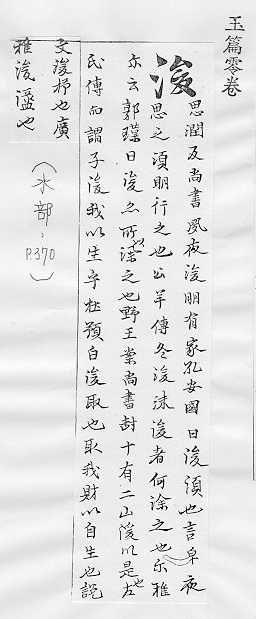 玉篇零卷
浚 思潤反尚書夙夜浚明有家孔安國曰浚須也言早夜
思之須明行之也公羊傳冬浚洙浚者何深之也尒雅
亦云郭璞曰浚忽所深之也野王案尚書封十有二山浚川是也左
氏傳而謂子浚我以生乎杜預曰浚取也取我財以自生也說
文浚杼也廣
雅浚溋也
(水部、P.370)